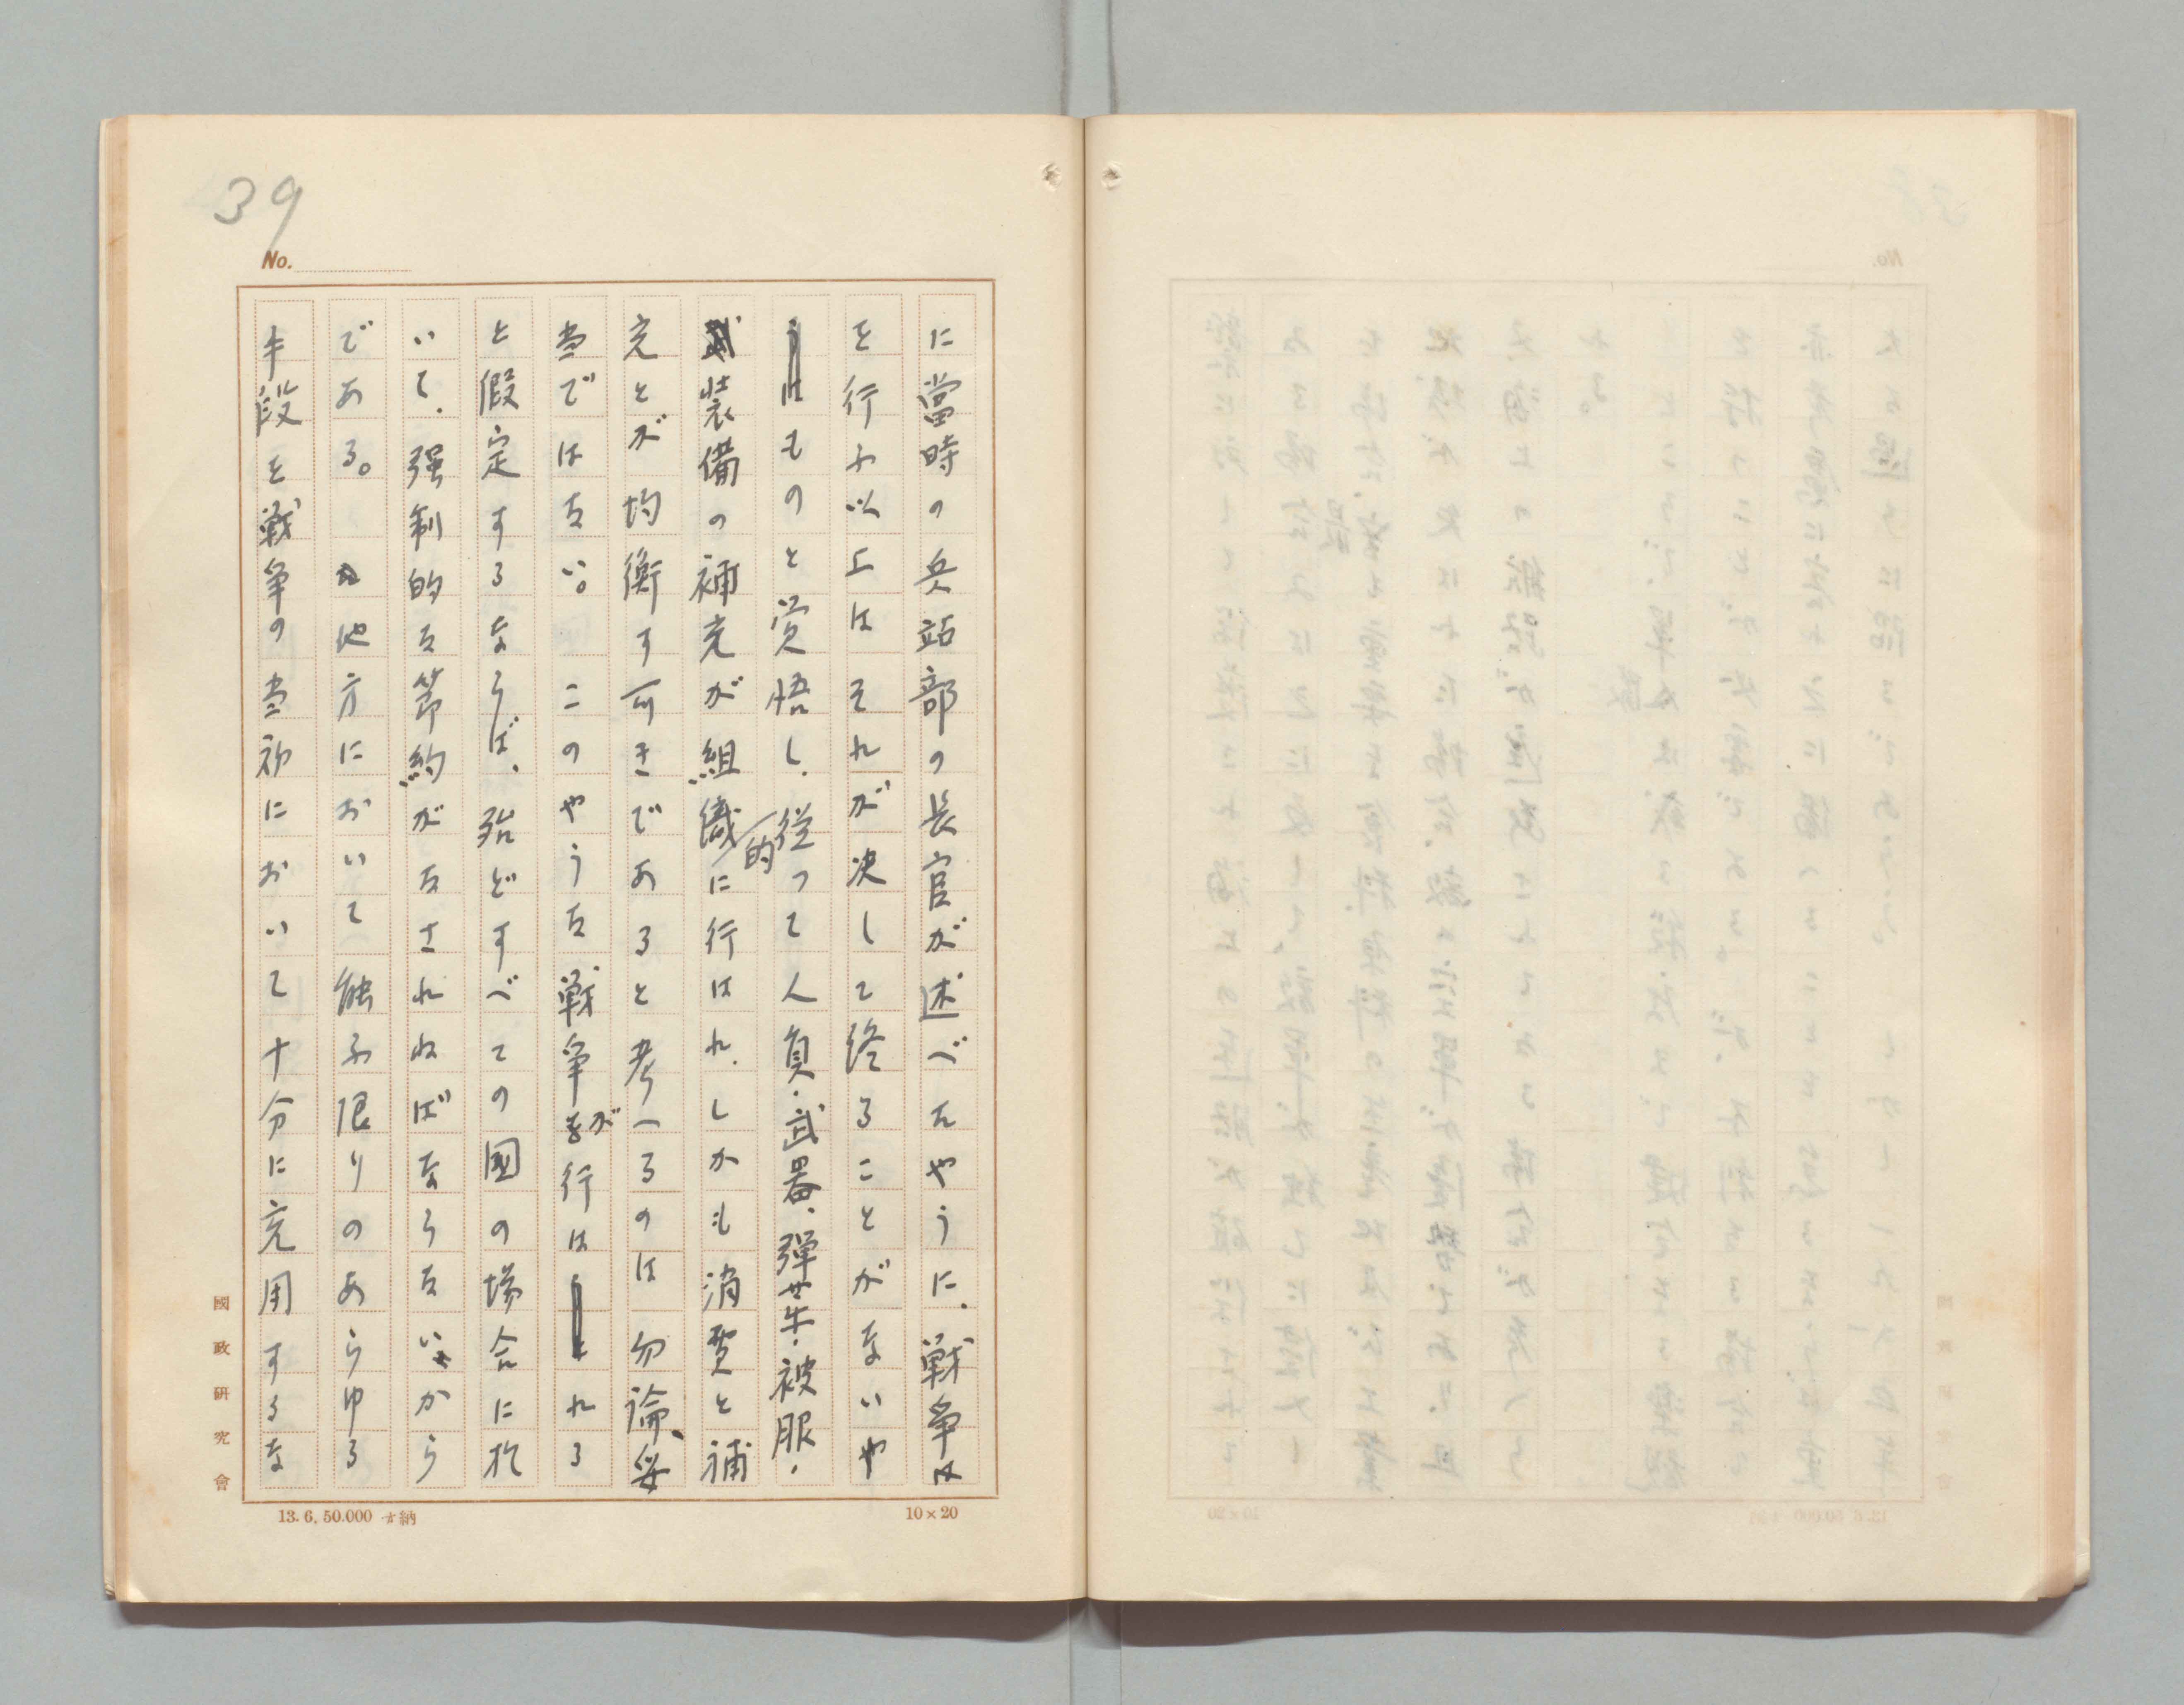 39
No.
に當時の兵站部の長官が述べたやうに、戦争は
を行ふ以上はそれが決して終ることがないや
うなものと覚悟し、従って人員・武器・弾薬・被服・
装備の補充が組織的に行はれ、しかも消費と補
充とが均衡す可きであると考へるのは勿論、妥
当ではない。このやうな戦争が行はれる
と假定するならば、殆どすべての國の場合に於
いて、强制的な節約がなされねばならないから
である。他方において能ふ限りのあらゆる
手段を戦争の当初において十分に充用するな
國政研究會
13.6.50.000 納
10×20